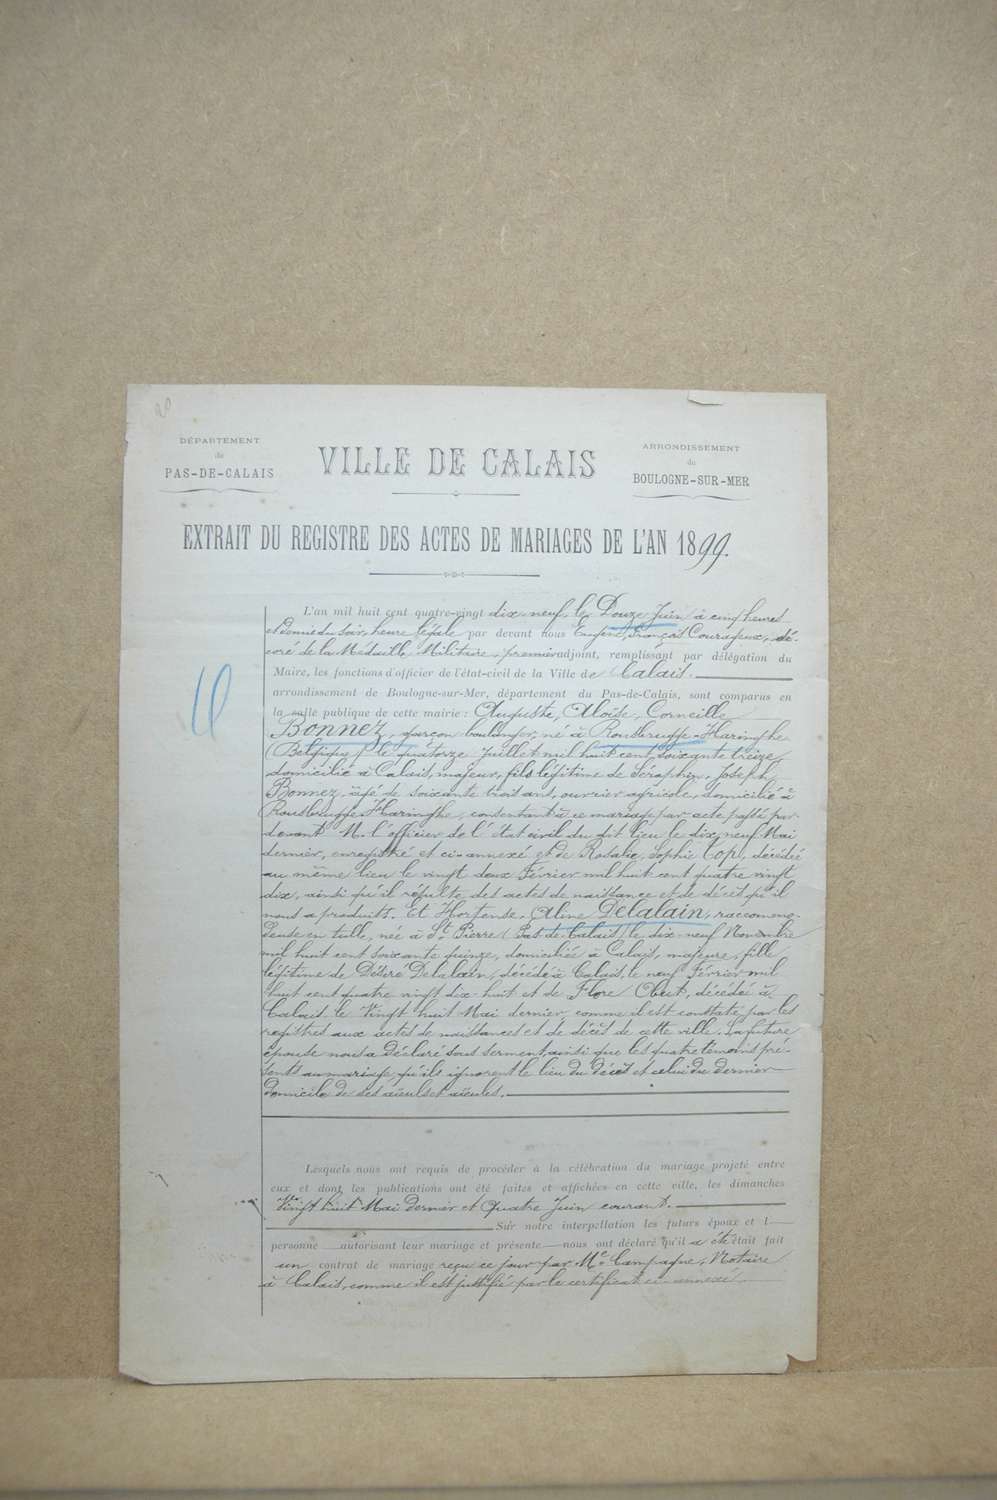 DÉPARTEMENT
de
PAS-DE-CALAIS
VILLE DE CALAIS
ARRONDISSEMENT
de
BOULOGNE-SUR-MER
EXTRAIT DU REGISTRE DES ACTES DE MARIAGES DE L'AN 1899.
L'an mil huit cent quatre-vingt dix-neuf, le Douze Juin à cinq heures
et demie du soir, heure légale par devant nous Eugène, François Courageux, dé-
coré de la Médaille Militaire, premier adjoint, remplissant par délégation du
Maire, les fonctions d'officier de l'état-civil de la Ville de Calais.
arrondissement de Boulogne-sur-Mer, département du Pas-de-Calais, sont comparus en
la salle publique de cette mairie : Auguste, Aloïse, Corneille
Bonnez, garçon boulanger, né à Rousbrugge-Haringhe
(Belgique) le quatorze Juillet mil huit cent soixante treize,
domicilié à Calais, majeur, fils légitime de Séraphin, Joseph
Bonnez, âgé de soixante trois ans, ouvrier agricole, domicilié à
Rousbrugge Haringhe, consentant à ce mariage par acte passé par
devant M. l'officier de l'état civil du dit lieu le dix neuf Mai
dernier, enregistré et ci-annexé et de Rosalie, Sophie Top, décédée
au même lieu le vingt deux Février mil huit cent quatre vingt
dix, ainsi qu'il résulte des actes de naissance et de décès qu'il
nous a produits. Et Hortense, Aline Delalain, raccommo-
deuse en tulle, née à St Pierre (Pas-de-Calais) le dix-neuf Novembre
mil huit cent soixante quinze, domiciliée à Calais, majeure, fille
légitime de Désiré Delalain, décédé à Calais, le neuf Février mil
huit cent quatre vingt dix huit et de Flore Obert, décédée à
Calais le Vingt huit Mai dernier, comme il est constaté par les
registres aux actes de naissances et de décès de cette ville. La future
épouse nous a déclaré sous serment, ainsi que les quatre témoins pré-
sents au mariage, qu'ils ignorent le lieu du décès et celui du dernier
domicile de ses aïeuls et aïeules.
Lesquels nous ont requis de procéder à la célébration du mariage projeté entre
eux et dont les publications ont été faites et affichées en cette ville, les dimanches
Vingt huit Mai dernier et Quatre Juin courant.
Sur notre interpellation les futurs époux et l
personne autorisant leur mariage et présente nous ont déclaré qu'il a été était fait
un contrat de mariage reçu ce jour par Me Campagne, Notaire
à Calais, comme il est justifié par le certificat ci-annexé.